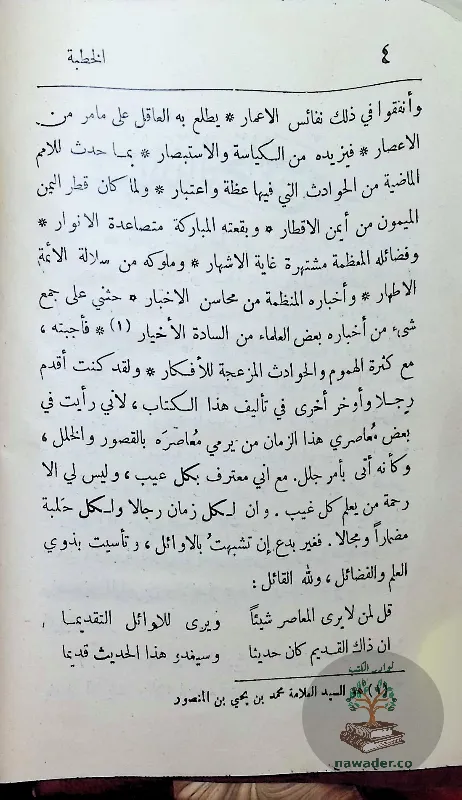 ٤
الخطبة
وأنفقوا في ذلك نفائس الاعمار * يطلع به العاقل على مامر من
الاعصار * فيزيده من الكياسة والاستبصار * بما حدث للامم
الماضية من الحوادث التي فيها عظة واعتبار * ولما كان قطر اليمن
الميمون من أيمن الاقطار * وبقعته المباركة متصاعدة الانوار *
وفضائله المعظمة مشتهرة غاية الاشهار * وملوكه من سلالة الأئمة
الاطهار * وأخباره المنظمة من محاسن الاخبار * حثني على جمع
شيء من أخباره بعض العلماء من السادة الأخيار (١) * فأجبته ،
مع كثرة الهموم والحوادث المزعجة للأفكار * ولقد كنت أقدم
رجلا وأوخر أخرى في تأليف هذا الكتاب ، لاني رأيت في
بعض مُعاصري هذا الزمان من يرمي مُعاصرَه بالقصور والخلل ،
وكأنه أتى بأمر جلل. مع اني معترف بكل عيب ، وليس لي الا
رحمة من يعلم كل غيب . وان لكل زمان رجالا ولكل حَلبة
مضماراً ومجالا . فغير بدع إن تشبهتُ بالاوائل ، وتأسيت بذوي
العلم والفضائل ، ولله القائل :
قل لمن لا يرى المعاصر شيئاً ويرى للاوائل التقديما
ان ذاك القديم كان حديثا وسيغدو هذا الحديث قديما
(١) هو السيد العلامة محمد بن يحيى بن المنصور
نوادر الكتب
nawader.co